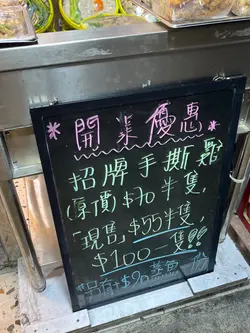 *開業優惠*
招牌手撕雞
(原價)$70半隻,
現售$55半隻,
$100一隻!!